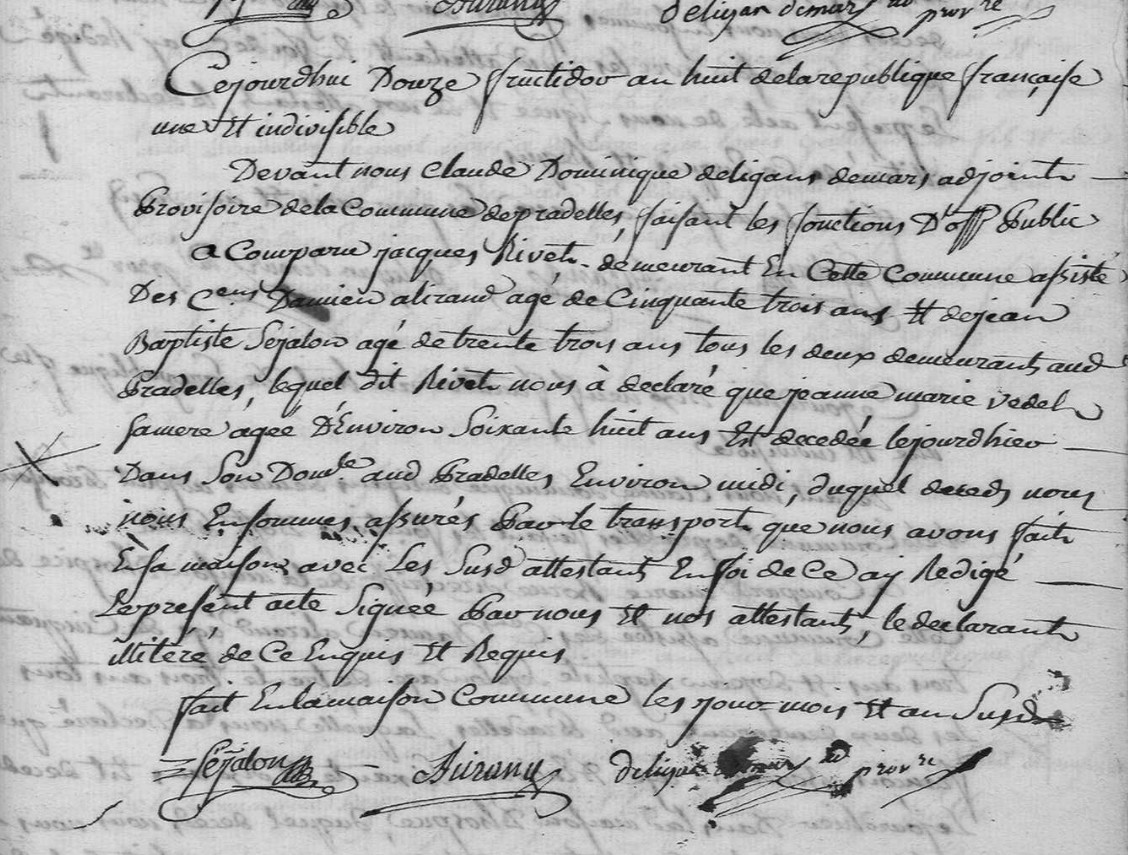 deligan demars ad provre
Cejourdhui Douze fructidor an huit delarepublique française
une Et indivisible
Devant nous Claude Dominique deligans demars adjoint
Provisoire dela Commune depradelles, faisant les fonctions D'off Public
a Comparu jacques Rivet demeurant En Cette Commune assisté
Des Cens Damien alirand agé de Cinquante trois ans Et dejean
Baptiste Sejalon agé de trente trois ans tous les deux demeurant aud
Pradelles, lequel dit Rivet nous à declaré que jeanne marie vedel
samere agée D'Environ Soixante huit ans Est decedée lejourdhier
Dans Son Domle aud Pradelles Environ midi, duquel deceds nous
nous Ensommes assurés Par le transport que nous avons fait
Ensa maison avec Les Susd attestant Enfoi de Ce ay Redigé
Lepresent acte Signée Par nous Et nos attestant, le declarant
illitéré de Ce Enquis Et Requis
fait Enlamaison Commune les jour mois Et an Susd
Sejalon deligan demars ad provre